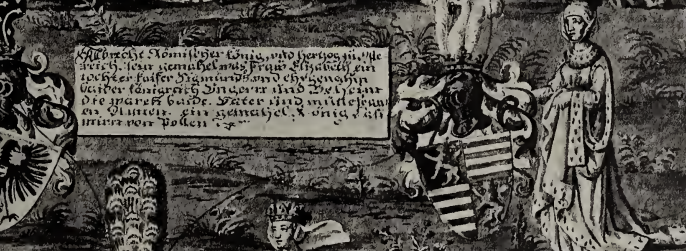 Albrecht Römischer König und hertzog zu Öste
reich. Sein gemahel was fraw Elizabeth ein
tochter kaiser Sigmunds und
baider königreich Ungeren und Beheim
Die waren baide Vater und mutter
ein gemahel König
mirn von Pollen